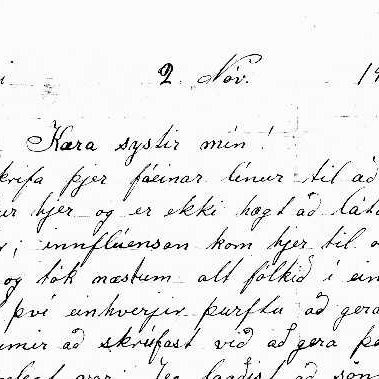 i 2 Nóv. 19
Kæra systir mín!
krifa þjer fáeinar línur til að
ur hjer og er ekki hægt að láta
r; innflúensan kom hjer til a
og tók næstum alt fólkið í ein
því einhverjir þurftu að gera
umir að skreiðast við að gera þa
legt var. Jeg lagðist að sön